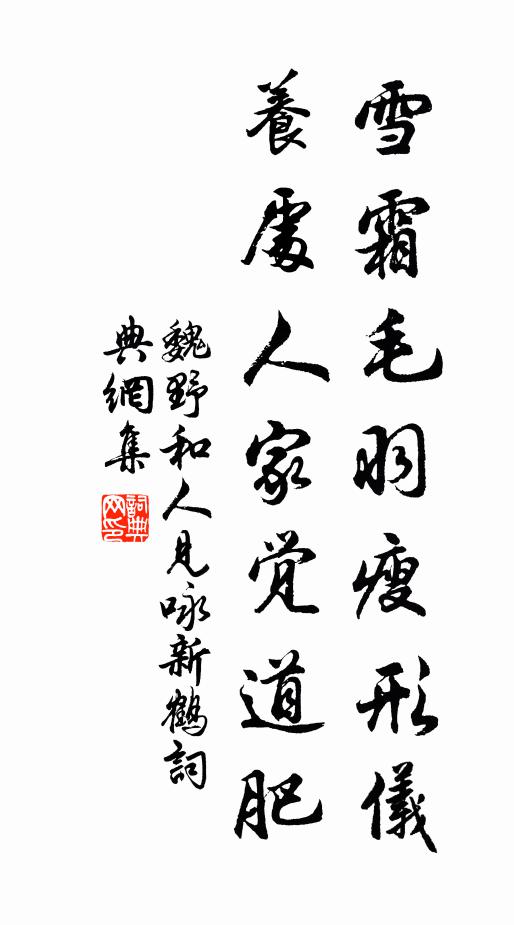 雪霜毛羽瘦形儀
養處人家覚道肥
魏野和人見咏新鶴詞
典網集
詞典
网印